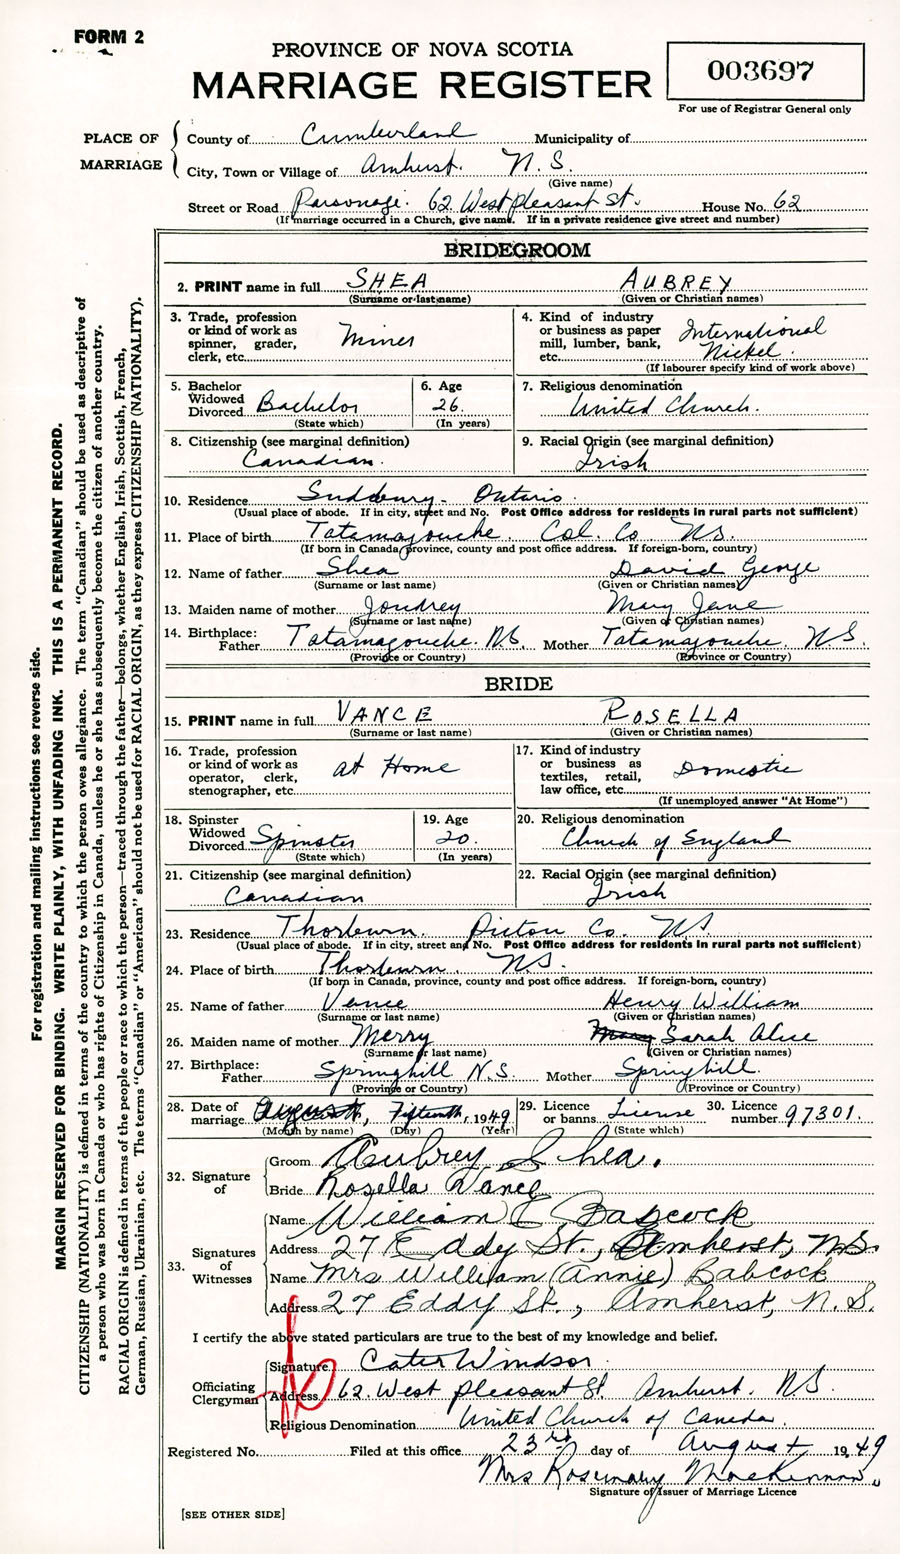 FORM 2
PROVINCE OF NOVA SCOTIA
MARRIAGE REGISTER
003697
For use of Registrar General only
PLACE OF MARRIAGE
County of Cumberland Municipality of
City, Town or Village of Amherst. N.S.
(Give name)
Street or Road Parsonage. 62 West pleasant St. House No. 62
(If marriage occurred in a Church, give name. If in a private residence give street and number)
BRIDEGROOM
2. PRINT name in full SHEA AUBREY
(Surname or last name) (Given or Christian names)
3. Trade, profession or kind of work as spinner, grader, clerk, etc. Miner
4. Kind of industry or business as paper mill, lumber, bank, etc. International Nickel.
(If labourer specify kind of work above)
5. Bachelor Widowed Divorced Bachelor
(State which)
6. Age 26.
(In years)
7. Religious denomination
United Church.
8. Citizenship (see marginal definition)
Canadian.
9. Racial Origin (see marginal definition)
Irish
10. Residence Sudbury - Ontario.
(Usual place of abode. If in city, street and No. Post Office address for residents in rural parts not sufficient)
11. Place of birth Tatamagouche. Col. Co. N.S.
(If born in Canada, province, county and post office address. If foreign-born, country)
12. Name of father Shea David George
(Surname or last name) (Given or Christian names)
13. Maiden name of mother Joudrey Mary Jane
(Surname or last name) (Given or Christian names)
14. Birthplace: Father Tatamagouche. N.S. Mother Tatamagouche. N.S.
(Province or Country) (Province or Country)
BRIDE
15. PRINT name in full VANCE ROSELLA
(Surname or last name) (Given or Christian names)
16. Trade, profession or kind of work as operator, clerk, stenographer, etc. at Home
17. Kind of industry or business as textiles, retail, law office, etc. Domestic
(If unemployed answer "At Home")
18. Spinster Widowed Divorced Spinster
(State which)
19. Age 20.
(In years)
20. Religious denomination
Church of England
21. Citizenship (see marginal definition)
Canadian
22. Racial Origin (see marginal definition)
Irish
23. Residence Thorburn. Pictou Co. NS
(Usual place of abode. If in city, street and No. Post Office address for residents in rural parts not sufficient)
24. Place of birth Thorburn. N.S.
(If born in Canada, province, county and post office address. If foreign-born, country)
25. Name of father Vance Henry William
(Surname or last name) (Given or Christian names)
26. Maiden name of mother Merry Mary Sarah Alice
(Surname or last name) (Given or Christian names)
27. Birthplace: Father Springhill N.S. Mother Springhill.
(Province or Country) (Province or Country)
28. Date of marriage August, Fifteenth, 1949
(Month by name) (Day) (Year)
29. Licence or banns License
(State which)
30. Licence number 97301.
32. Signature of
Groom Aubrey Shea.
Bride Rosella Vance
33. Signatures of Witnesses
Name William E Babcock
Address 27 Eddy St., Amherst, N.S.
Name Mrs William (Annie) Babcock
Address 27 Eddy St., Amherst, N.S.
I certify the above stated particulars are true to the best of my knowledge and belief.
Officiating Clergyman
Signature Cater Windsor.
Address 62. West pleasant St. Amherst. NS.
Religious Denomination United Church of Canada.
Registered No. Filed at this office 23rd day of August 1949
Mrs Rosemary MacKinnon.
Signature of Issuer of Marriage Licence
[SEE OTHER SIDE]
For registration and mailing instructions see reverse side.
MARGIN RESERVED FOR BINDING. WRITE PLAINLY, WITH UNFADING INK. THIS IS A PERMANENT RECORD.
CITIZENSHIP (NATIONALITY) is defined in terms of the country to which the person owes allegiance. The term "Canadian" should be used as descriptive of
a person who was born in Canada or who has rights of Citizenship in Canada, unless he or she has subsequently become the citizen of another country.
RACIAL ORIGIN is defined in terms of the people or race to which the person—traced through the father—belongs, whether English, Irish, Scottish, French,
German, Russian, Ukrainian, etc. The terms "Canadian" or "American" should not be used for RACIAL ORIGIN, as they express CITIZENSHIP (NATIONALITY).